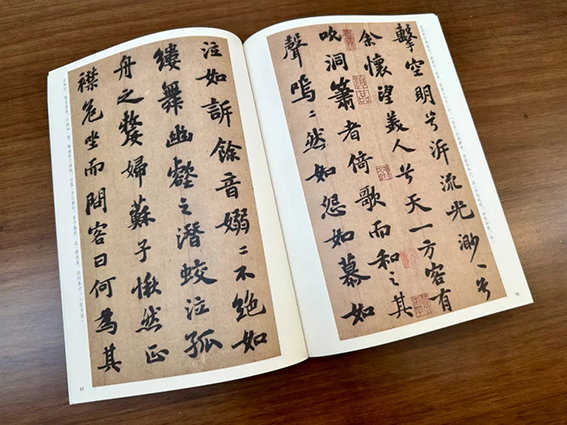 擊空明兮泝流光渺〻兮
余懷望美人兮天一方客有
吹洞簫者倚歌而和之其
聲嗚〻然如怨如慕如
泣如訴餘音嫋〻不絕如
縷舞幽壑之潛蛟泣孤
舟之嫠婦蘇子愀然正
襟危坐而問客曰何為其
17